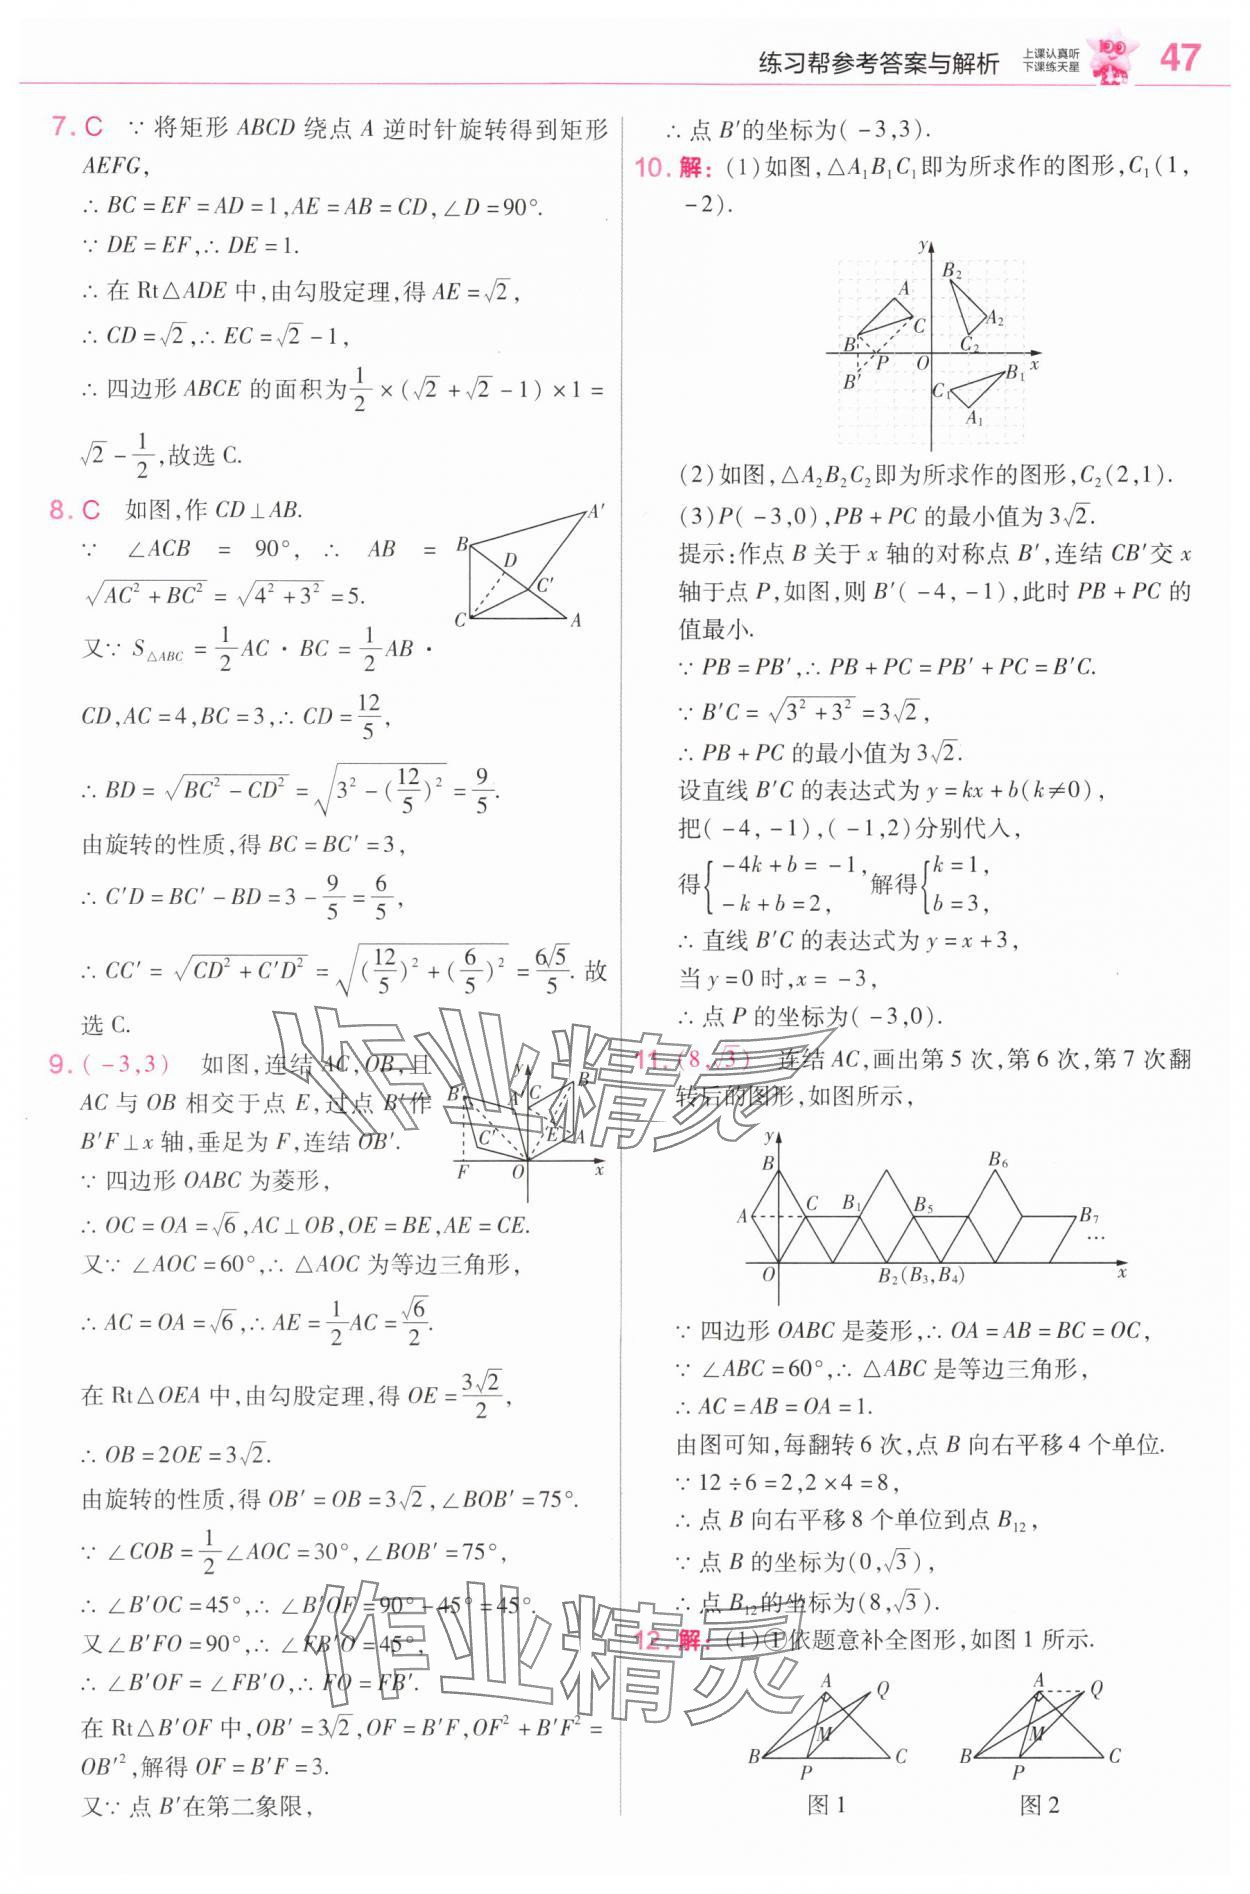 练习帮参考答案与解析
上课认真听
下课练天星
47
7. C ∵ 将矩形 ABCD 绕点 A 逆时针旋转得到矩形
AEFG,
∴ BC = EF = AD = 1, AE = AB = CD, ∠D = 90°.
∵ DE = EF, ∴ DE = 1.
∴ 在 Rt△ADE 中,由勾股定理,得 AE = √2,
∴ CD = √2, ∴ EC = √2 - 1,
∴ 四边形 ABCE 的面积为 1/2 × (√2 + √2 - 1) × 1 =
√2 - 1/2, 故选 C.
8. C 如图,作 CD⊥AB.
∵ ∠ACB = 90°, ∴ AB =
√(AC² + BC²) = √(4² + 3²) = 5.
又∵ S△ABC = 1/2 AC · BC = 1/2 AB ·
CD, AC = 4, BC = 3, ∴ CD = 12/5,
∴ BD = √(BC² - CD²) = √(3² - (12/5)²) = 9/5.
由旋转的性质,得 BC = BC′ = 3,
∴ C′D = BC′ - BD = 3 - 9/5 = 6/5,
∴ CC′ = √(CD² + C′D²) = √((12/5)² + (6/5)²) = 6√5/5. 故
选 C.
B
A′
D
C′
C
A
9. (-3,3) 如图,连结 AC,OB,且
AC 与 OB 相交于点 E,过点 B′作
B′F⊥x 轴,垂足为 F,连结 OB′.
∵ 四边形 OABC 为菱形,
∴ OC = OA = √6, AC⊥OB, OE = BE, AE = CE.
又∵ ∠AOC = 60°, ∴ △AOC 为等边三角形,
∴ AC = OA = √6, ∴ AE = 1/2 AC = √6/2.
在 Rt△OEA 中,由勾股定理,得 OE = 3√2/2,
∴ OB = 2OE = 3√2.
由旋转的性质,得 OB′ = OB = 3√2, ∠BOB′ = 75°.
∵ ∠COB = 1/2 ∠AOC = 30°, ∠BOB′ = 75°,
∴ ∠B′OC = 45°, ∴ ∠B′OF = 90° - 45° = 45°.
又∠B′FO = 90°, ∴ ∠FB′O = 45°,
∴ ∠B′OF = ∠FB′O, ∴ FO = FB′.
在 Rt△B′OF 中, OB′ = 3√2, OF = B′F, OF² + B′F² =
OB′², 解得 OF = B′F = 3.
又∵ 点 B′在第二象限,
y
C
B
C′
E
A
F
O
x
∴ 点 B′的坐标为( -3,3).
10. 解: (1)如图,△A₁B₁C₁即为所求作的图形,C₁(1,
-2).
y
B₂
A
C
A₂
C₂
B
P
O
x
B′
B₁
C₁
A₁
(2)如图,△A₂B₂C₂即为所求作的图形,C₂(2,1).
(3)P( -3,0),PB + PC 的最小值为 3√2.
提示:作点 B 关于 x 轴的对称点 B′,连结 CB′交 x
轴于点 P,如图,则 B′( -4, -1),此时 PB + PC 的
值最小.
∵ PB = PB′, ∴ PB + PC = PB′ + PC = B′C.
∵ B′C = √(3² + 3²) = 3√2,
∴ PB + PC 的最小值为 3√2.
设直线 B′C 的表达式为 y = kx + b(k≠0),
把( -4, -1),( -1,2)分别代入,
得{ -4k + b = -1, -k + b = 2, 解得{ k = 1, b = 3,
∴ 直线 B′C 的表达式为 y = x + 3,
当 y = 0 时,x = -3,
∴ 点 P 的坐标为( -3,0).
11. (8,√3) 连结 AC,画出第 5 次,第 6 次,第 7 次翻
转后的图形,如图所示,
y
B
B₆
A
C
B₁
B₅
B₇
…
O
B₂(B₃,B₄)
x
∵ 四边形 OABC 是菱形,∴ OA = AB = BC = OC,
∵ ∠ABC = 60°,∴ △ABC 是等边三角形,
∴ AC = AB = OA = 1.
由图可知,每翻转 6 次,点 B 向右平移 4 个单位.
∵ 12 ÷ 6 = 2, 2 × 4 = 8,
∴ 点 B 向右平移 8 个单位到点 B₁₂,
∵ 点 B 的坐标为(0,√3),
∴ 点 B₁₂的坐标为(8,√3).
12. 解: (1)①依题意补全图形,如图 1 所示.
A
Q
M
B
P
C
图 1
A
Q
M
B
P
C
图 2
作业精灵
作业精灵